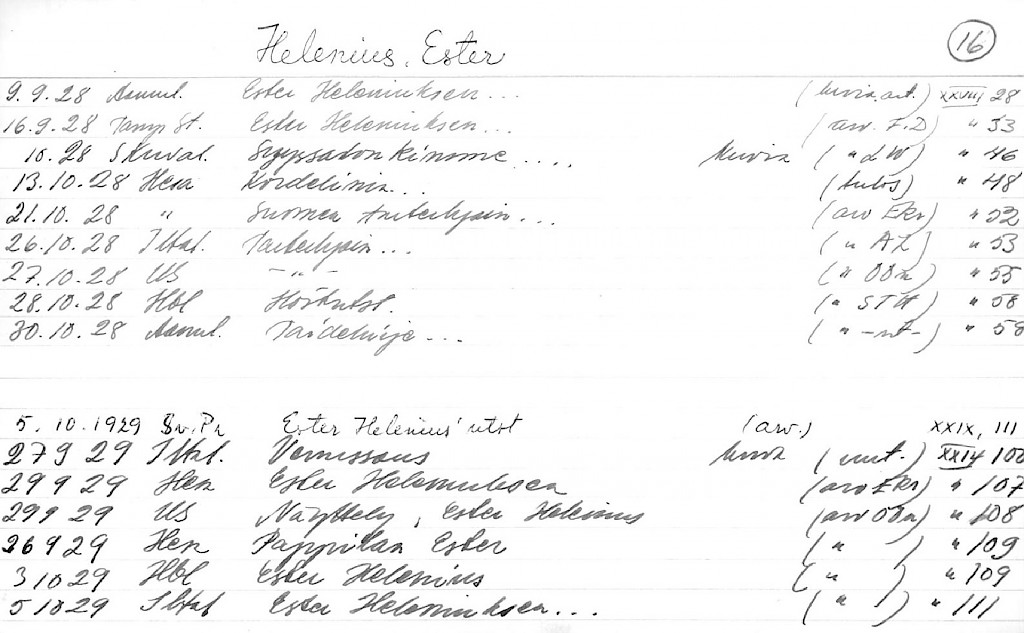 Helenius, Ester 16
9.9.28 Aamul. Ester Heleniuksen... (kuvia, art.) XXVIII 28
16.9.28 Tamp St. Ester Heleniuksen... (arv. F.D) " 33
10.28 S Kuval. Syyssadon kinome.... kuvia ( " LW) " 46
13.10.28 Hesa Kordelinin... (tulos) " 48
21.10.28 " Suomen taiteilijain... (arv EKr) " 52
26.10.28 Iltal. Taiteilijain... ( " AL) " 53
27.10.28 US - " - ( " OOn) " 55
28.10.28 Hbl Höstutst. ( " ) " 58
30.10.28 Aamul. Taidekirje... ( " -nt-) " 58
5.10.1929 Sv.Pr Ester Helenius' utst (arv.) XXIX, 111
27 9 29 Iltal. Vernissaus kuva ( ) 106
29 9 29 Hesa Ester Heleniuksen (arv EKr) " 107
29 9 29 US Näyttely, Ester Helenius (arv OOn) " 108
26 9 29 Hesa Pappilan Ester ( " ) " 109
3 10 29 Hbl Ester Helenius ( " ) " 109
5 10 29 Iltal Ester Heleniuksen... ( " ) " 111